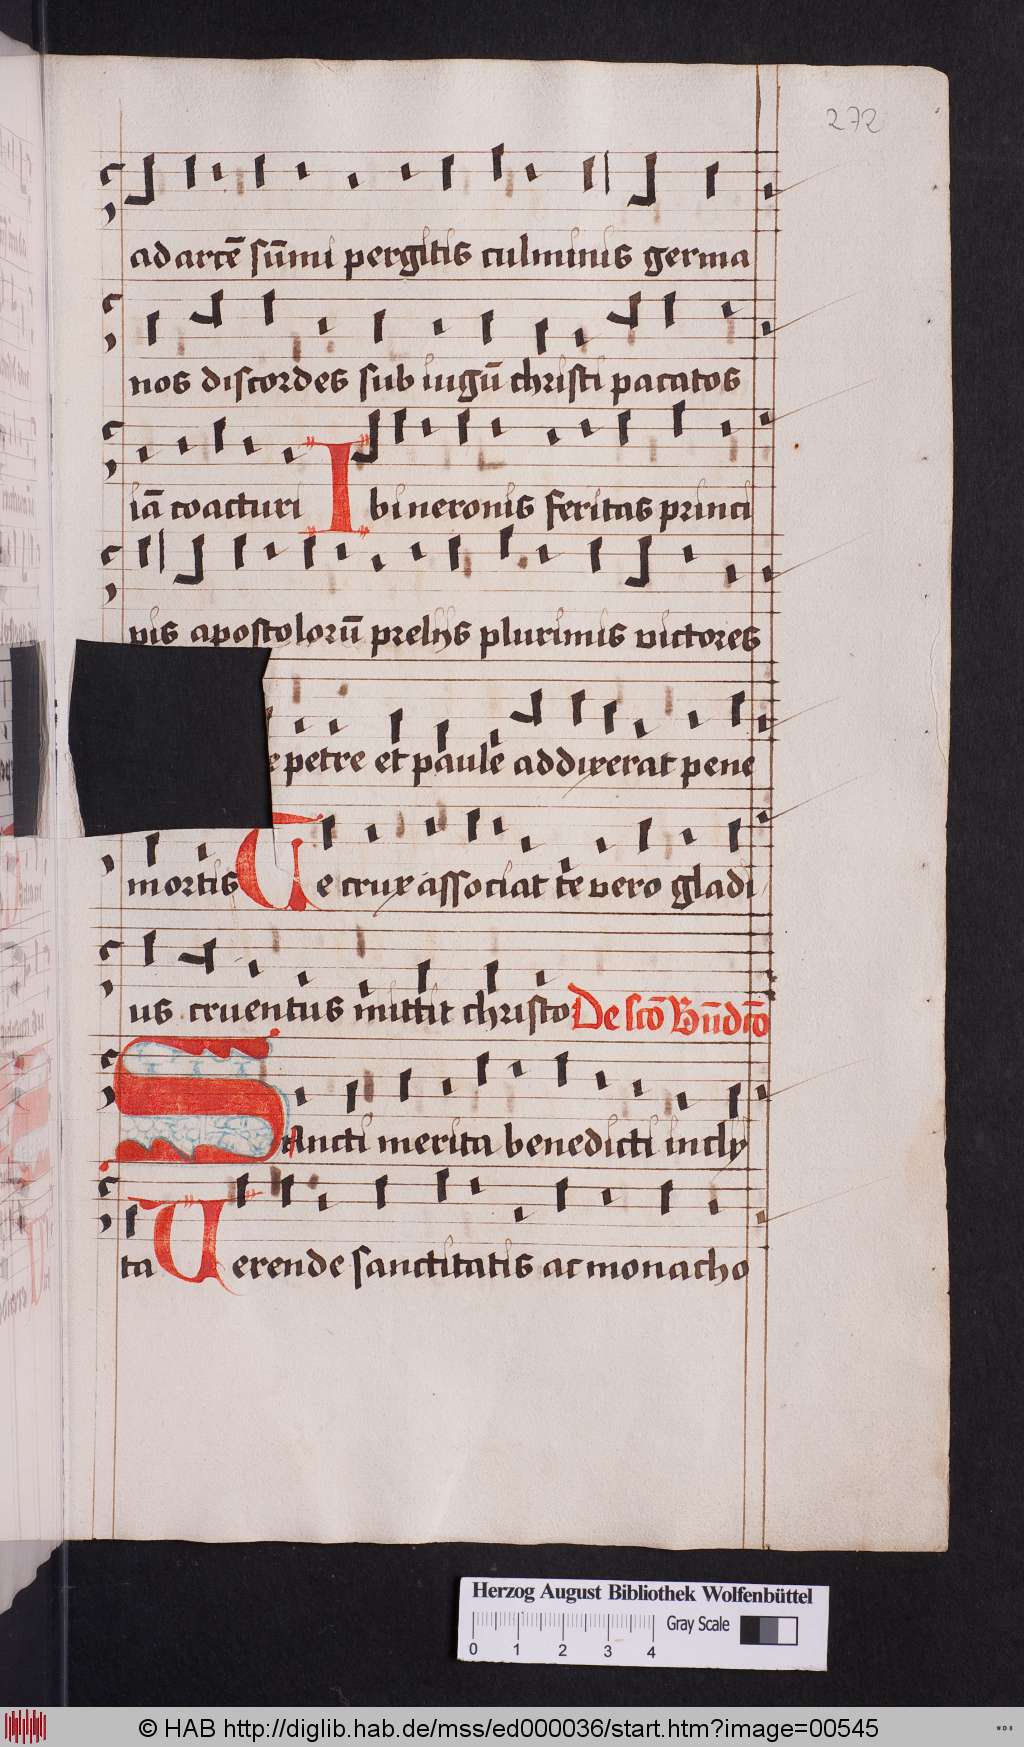 272
ad artē sūmi pergitis culminis germa
nos discordes sub iugū christi pacatos
iā coacturi Ibi neronis feritas princi
pis apostolorū prelijs plurimis victores
e petre et paule addixerat pene
mortis Te crux associat te vero gladi
us cruentus mittit christo De scō Bn̄dcō
Sancti merita benedicti incly
ta Verende sanctitatis ac monacho
Herzog August Bibliothek Wolfenbüttel
Gray Scale
0 1 2 3 4
© HAB http://diglib.hab.de/mss/ed000036/start.htm?image=00545